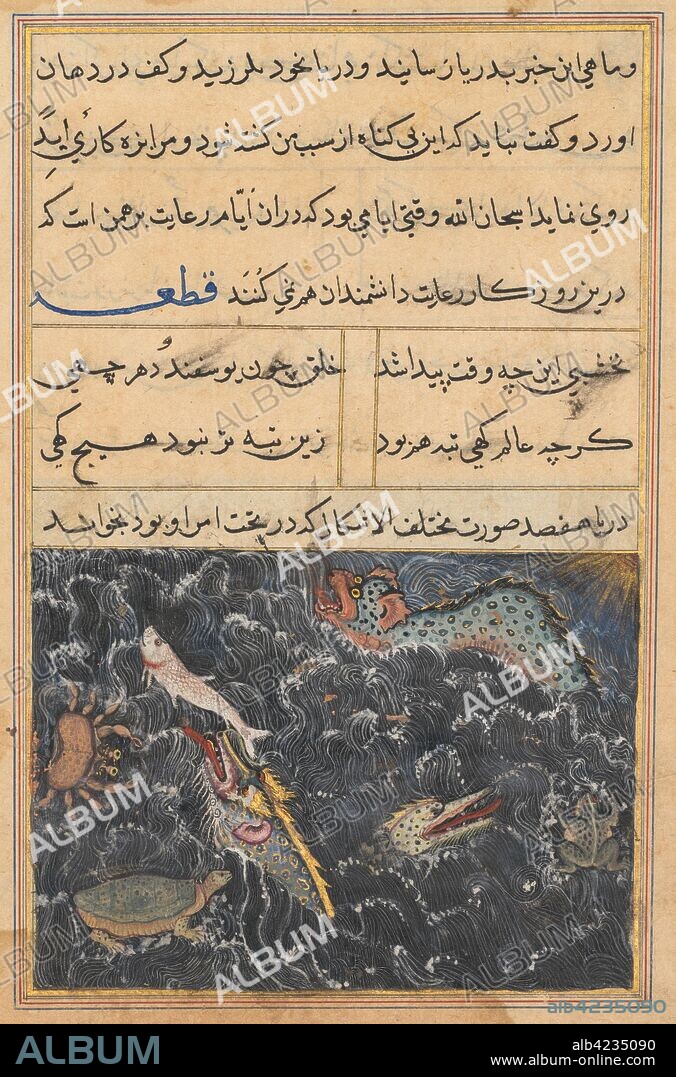 و ماهی این خبر بدریا رسانید و دریا بخود بلرزید و کف در دهان
اورد و کفت نباید که این بی کناه از سبب من کشته شود و مرا بزه کاری اید
روی نماید سبحان الله وقتی ایامی بود که در ان ایّام رعایت برهمن است که
درین روزکار رعایت دانشمندان هم نمی کُنَند قطعه
نخشبی این چه وقت پیدا شد خلق چون یوسفند دهر چهی
کرچه عالم کهی تبه هم بود زین تبه تر نبود هیچ کهی
دریا هفصد صورت مختلف الاشکال که در تحت امر او بود بخوانید
ALBUM
alb4235090
ALBUM
alb4235090
www.album-online.com